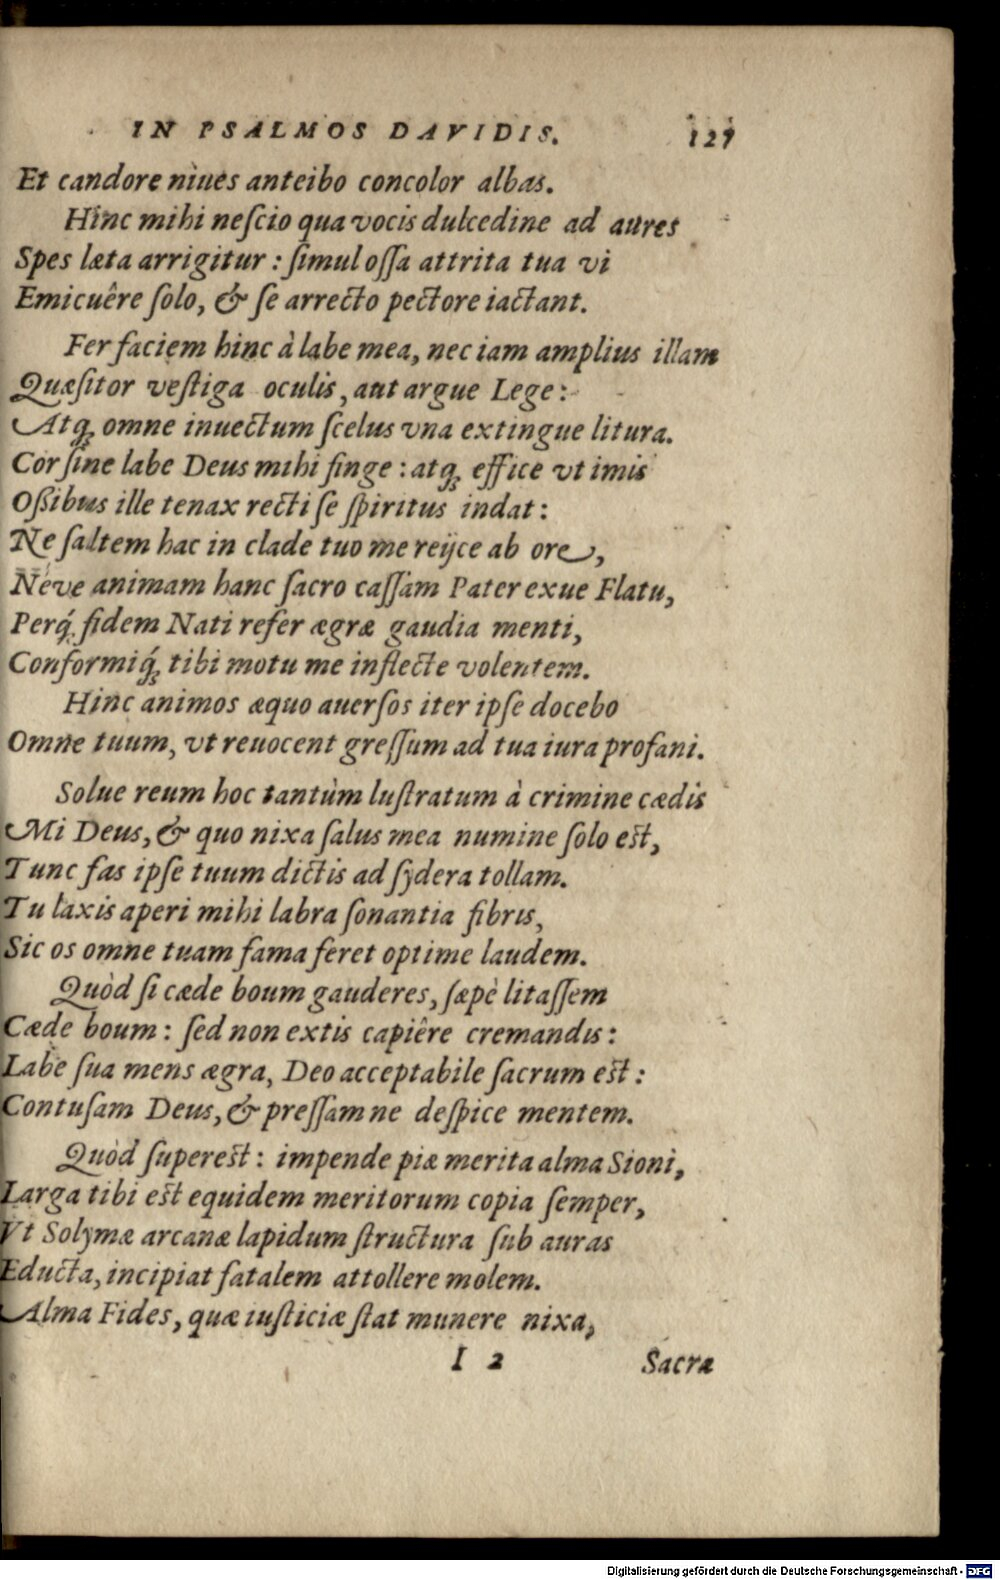 IN PSALMOS DAVIDIS. 127
Et candore niues anteibo concolor albas.
Hinc mihi neſcio qua vocis dulcedine ad aures
Spes læta arrigitur : ſimul oſſa attrita tua vi
Emicuêre ſolo, & ſe arrecto pectore iactant.
Fer faciem hinc à labe mea, nec iam amplius illam
Quæſitor veſtiga oculis, aut argue Lege:
Atq; omne inuectum ſcelus vna extingue litura.
Cor ſine labe Deus mihi finge : atq; effice vt imis
Oſſibus ille tenax recti ſe ſpiritus indat :
Ne ſaltem hac in clade tuo me reijce ab ore,
Néve animam hanc ſacro caſſam Pater exue Flatu,
Perq́; fidem Nati refer ægræ gaudia menti,
Conformiq́; tibi motu me inflecte volentem.
Hinc animos æquo auerſos iter ipſe docebo
Omne tuum, vt reuocent greſſum ad tua iura profani.
Solue reum hoc tantùm luſtratum à crimine cædis
Mi Deus, & quo nixa ſalus mea numine ſolo eſt,
Tunc fas ipſe tuum dictis ad ſydera tollam.
Tu laxis aperi mihi labra ſonantia fibris,
Sic os omne tuam fama feret optime laudem.
Quòd ſi cæde boum gauderes, ſæpè litaſſem
Cæde boum : ſed non extis capiêre cremandis :
Labe ſua mens ægra, Deo acceptabile ſacrum eſt :
Contuſam Deus, & preſſam ne deſpice mentem.
Quòd ſupereſt : impende piæ merita alma Sioni,
Larga tibi eſt equidem meritorum copia ſemper,
Vt Solymæ arcanæ lapidum ſtructura ſub auras
Educta, incipiat fatalem attollere molem.
Alma Fides, quæ iuſticiæ ſtat munere nixa,
I 2 Sacræ
Digitalisierung gefördert durch die Deutsche Forschungsgemeinschaft - DFG